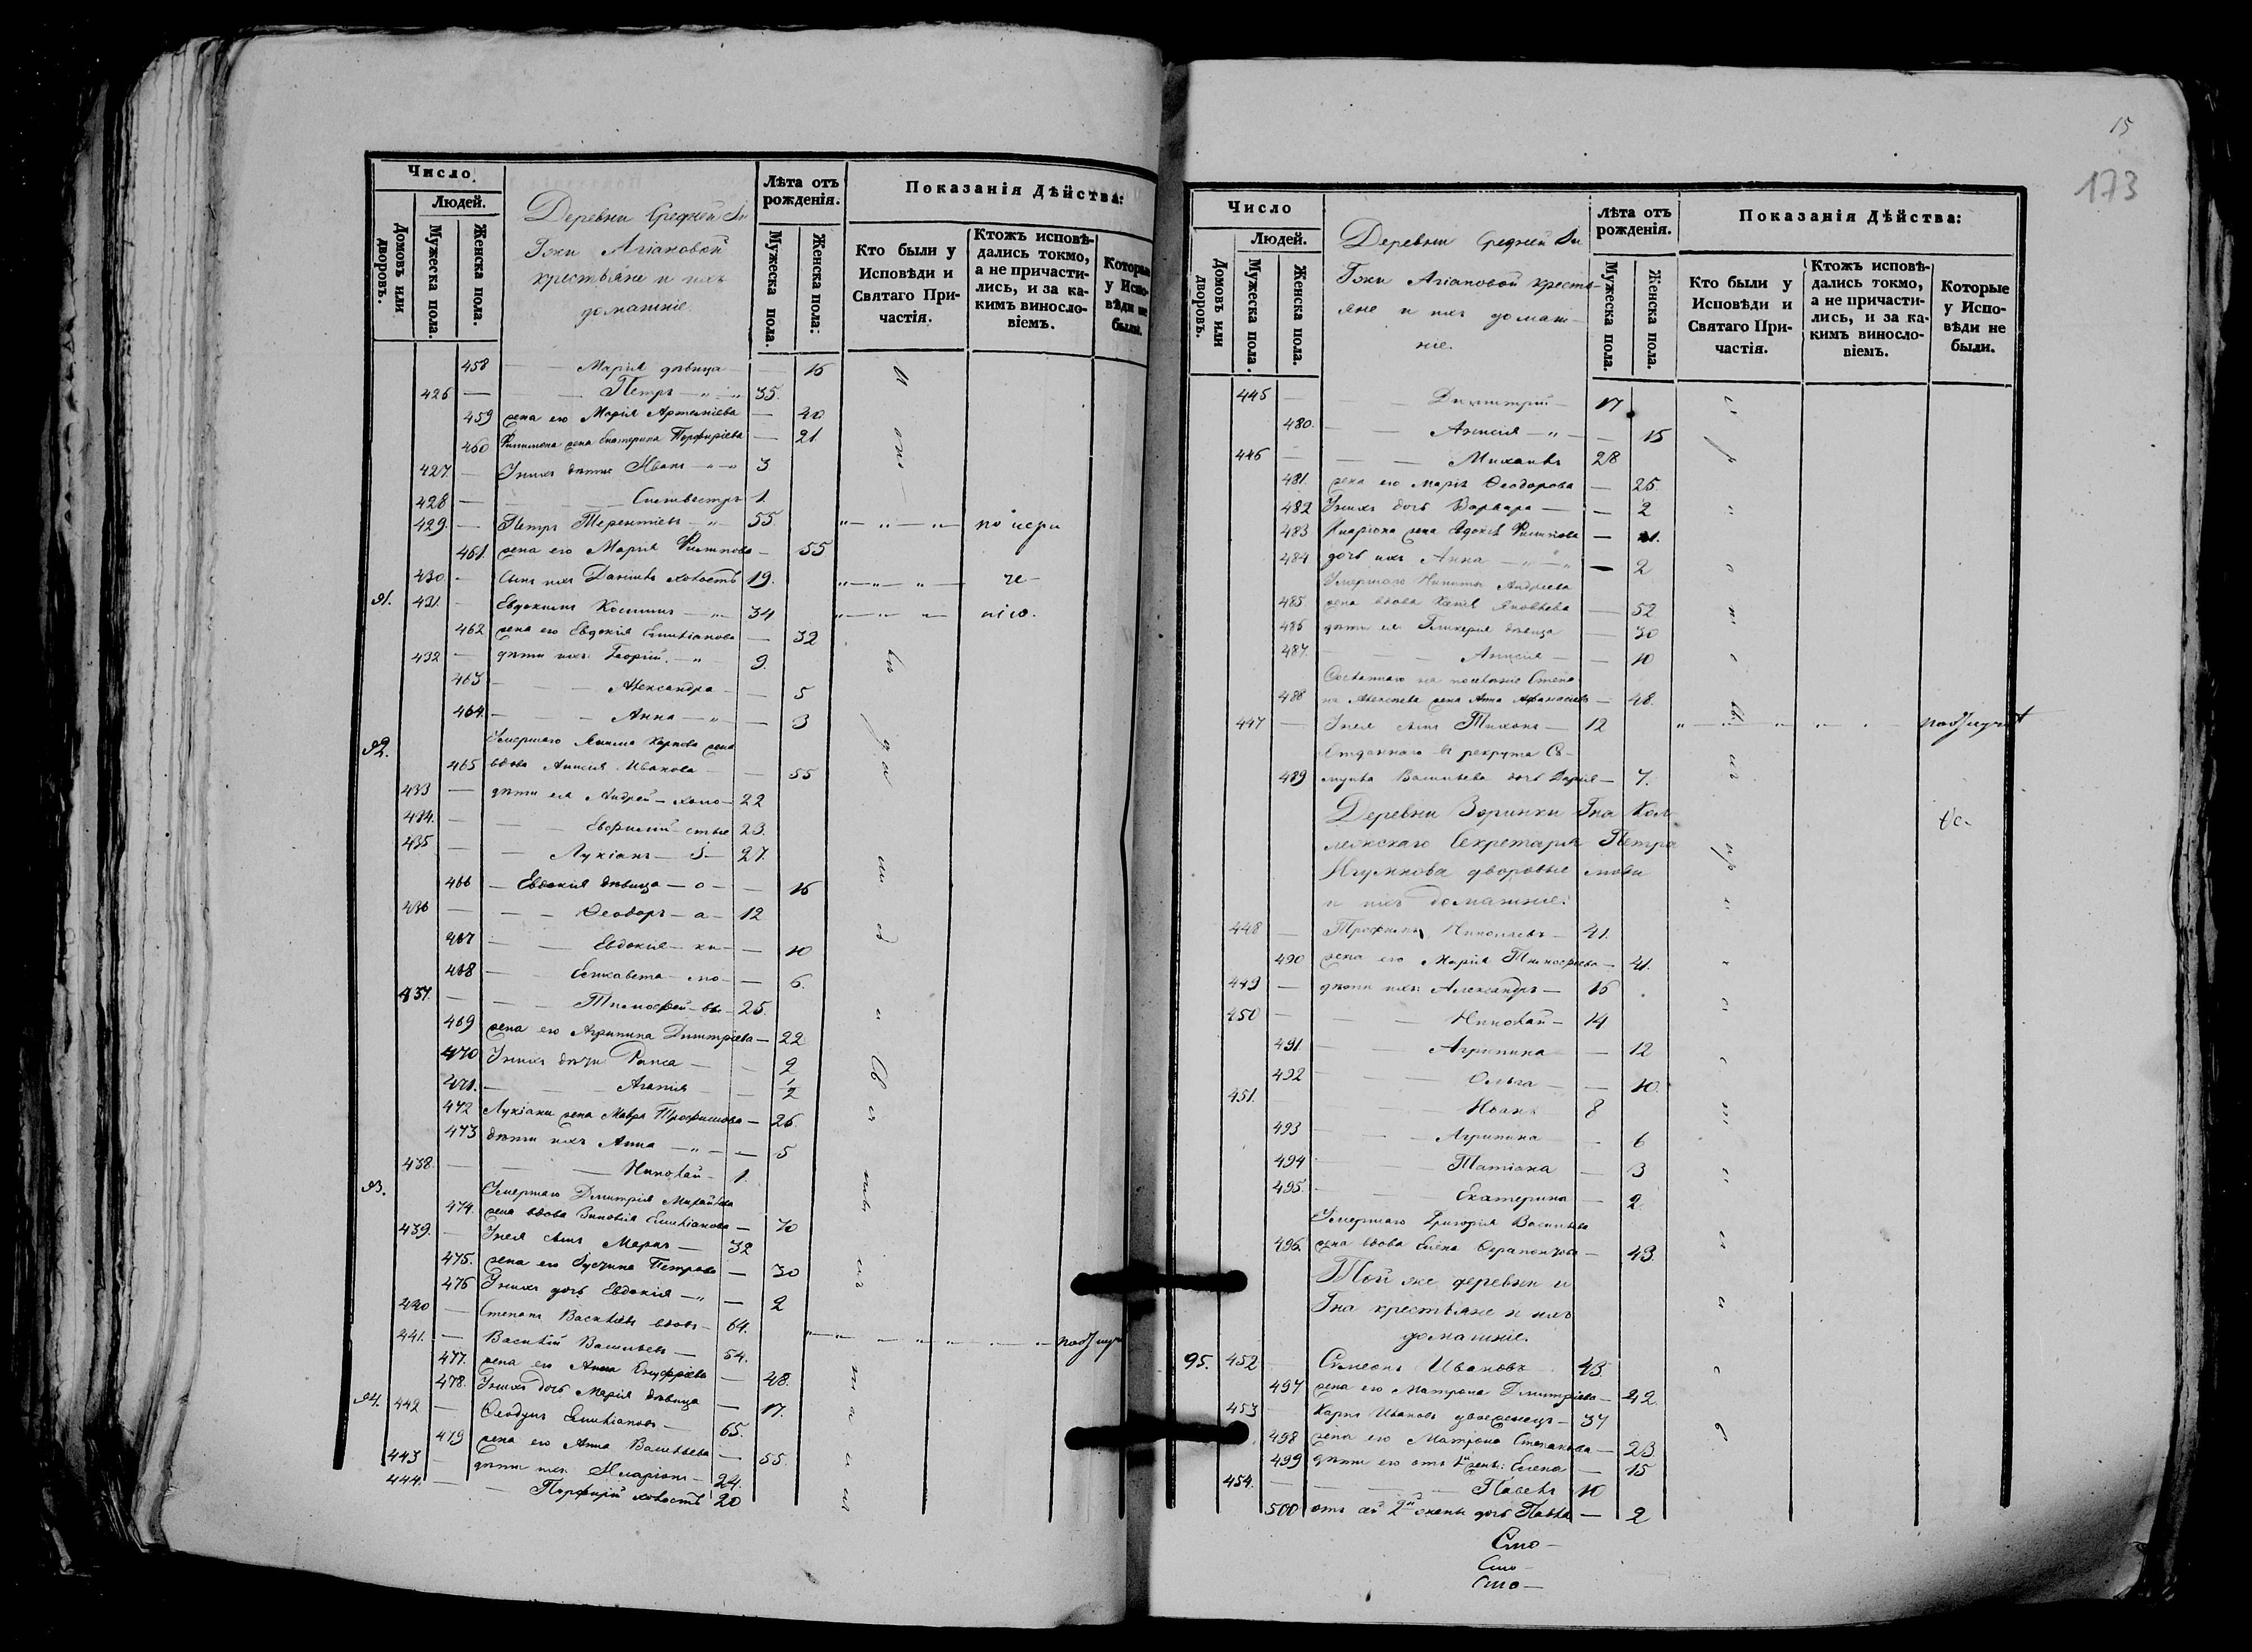 Число
Людей.
Домовъ или дворовъ.
Мужеска пола.
Женска пола.
Деревни Средней
Гжи Агіаковой
крестьяне и ихъ
домашніе.
Лѣта отъ рожденія.
Мужеска пола.
Женска пола:
Показанія Дѣйства:
Кто были у Исповѣди и Святаго Причастія.
Ктожъ исповѣдались токмо, а не причастились, и за какимъ винословіемъ.
Которые у Исповѣди не были.
458 Марія дѣвица 16
426 Петръ 35.
459 жена его Марія Артеміева 40
460 жена Екатерина Порфиріева 21
427 У нихъ дѣти Иванъ 3
428 Сильвестръ 1
429. Петръ Терентіевъ 55
461. жена его Марія Филипова 55
430. Сынъ ихъ Даніилъ холостъ 19.
91. 431. Евдокимъ Косминъ 34
462 жена его Евдокія Емиліанова 32
432 дѣти ихъ: Георгій 9.
463 Александра 5
464. Анна 3
92. Умершаго Карпова жена
465 вдова Анисія Иванова 55
433 дѣти ея Андрей 22
434. Евфимій 23.
435 Лукіанъ 27.
466 Евдокія дѣвица 16
436 Ѳеодоръ 12
467 Евдокія 10
468 Елисавета 6.
437. Тимоѳей 25.
469 жена его Агрипина Димитріева 22
470 У нихъ дѣти Раиса 2
471. Агапія 1/2
472 Лукіана жена Мавра Трофимова 26.
473 дѣти ихъ Анна 5
438. Николай 1.
93. Умершаго Дмитрія Михайлова
474. жена вдова Зиновія Емиліанова 70
439. У нея сынъ Маркъ 32
475. жена его Петрова 30
476 У нихъ дочь Евдокія 2
440 Степанъ Васильевъ вдовъ 64.
441. Василій Васильевъ 54.
477. жена его Анна Ануфріева 48.
478. У нихъ дочь Марія дѣвица 17.
94. 442 Ѳеодулъ Емиліановъ 65.
479 жена его Анна Васильева 55.
443 дѣти ихъ: Иларіонъ 24.
444. Порфирій холостъ 20
15
173
Число
Людей.
Домовъ или дворовъ.
Мужеска пола.
Женска пола.
Деревни Средней
Гжи Агіаковой кресть-
яне и ихъ домаш-
ніе.
Лѣта отъ рожденія.
Мужеска пола.
Женска пола.
Показанія Дѣйства:
Кто были у Исповѣди и Святаго Причастія.
Ктожъ исповѣдались токмо, а не причастились, и за какимъ винословіемъ.
Которые у Исповѣди не были.
445 Димитрій 17
480. Анисія 15
446 Михаилъ 28
481. жена его Марія Ѳеодорова 25.
482 У нихъ дочь Варвара 2
483 Иларіона жена Евдокія Филипова 21.
484 дочь ихъ Анна 2
Умершаго Никиты Андреева
485. жена вдова Ксенія Яковлева 52
486 дѣти ея Гликерія дѣвица 30
487. Анисія 10
Сосланнаго на поселеніе Степа-
488 на Алексѣева жена Анна Афанасьева 48.
447 У нея сынъ Тихонъ 12
Отданнаго въ рекрута Са-
489 муила Васильева дочь Дарія 7.
Деревни Зоринки Гна Кол-
лежскаго Секретаря Петра
Игумнова дворовые люди
и ихъ домашніе:
448 Трофимъ Николаевъ 41.
490 жена его Марія Тимоѳеева 41.
449 дѣти ихъ: Александръ 16
450 Николай 14
491 Агрипина 12
492 Ольга 10.
451. Иванъ 8
493 Агрипина 6
494 Татіана 3
495. Екатерина 2
Умершаго Григорія Васильева
496. жена вдова Елена Ферапонтова 43.
Той же деревни и
Гна крестьяне и ихъ
домашніе.
95. 452 Симеонъ Ивановъ 43
497 жена его Матрона Дмитріева 42
453 Карпъ Ивановъ двоеженецъ 37
498 жена его Матрона Степанова 23
499 дѣти его отъ 1й жены: Елена 15
454. Павелъ 10
500 отъ 2й жены дочь Павла 2
Сто
Сто
Сто